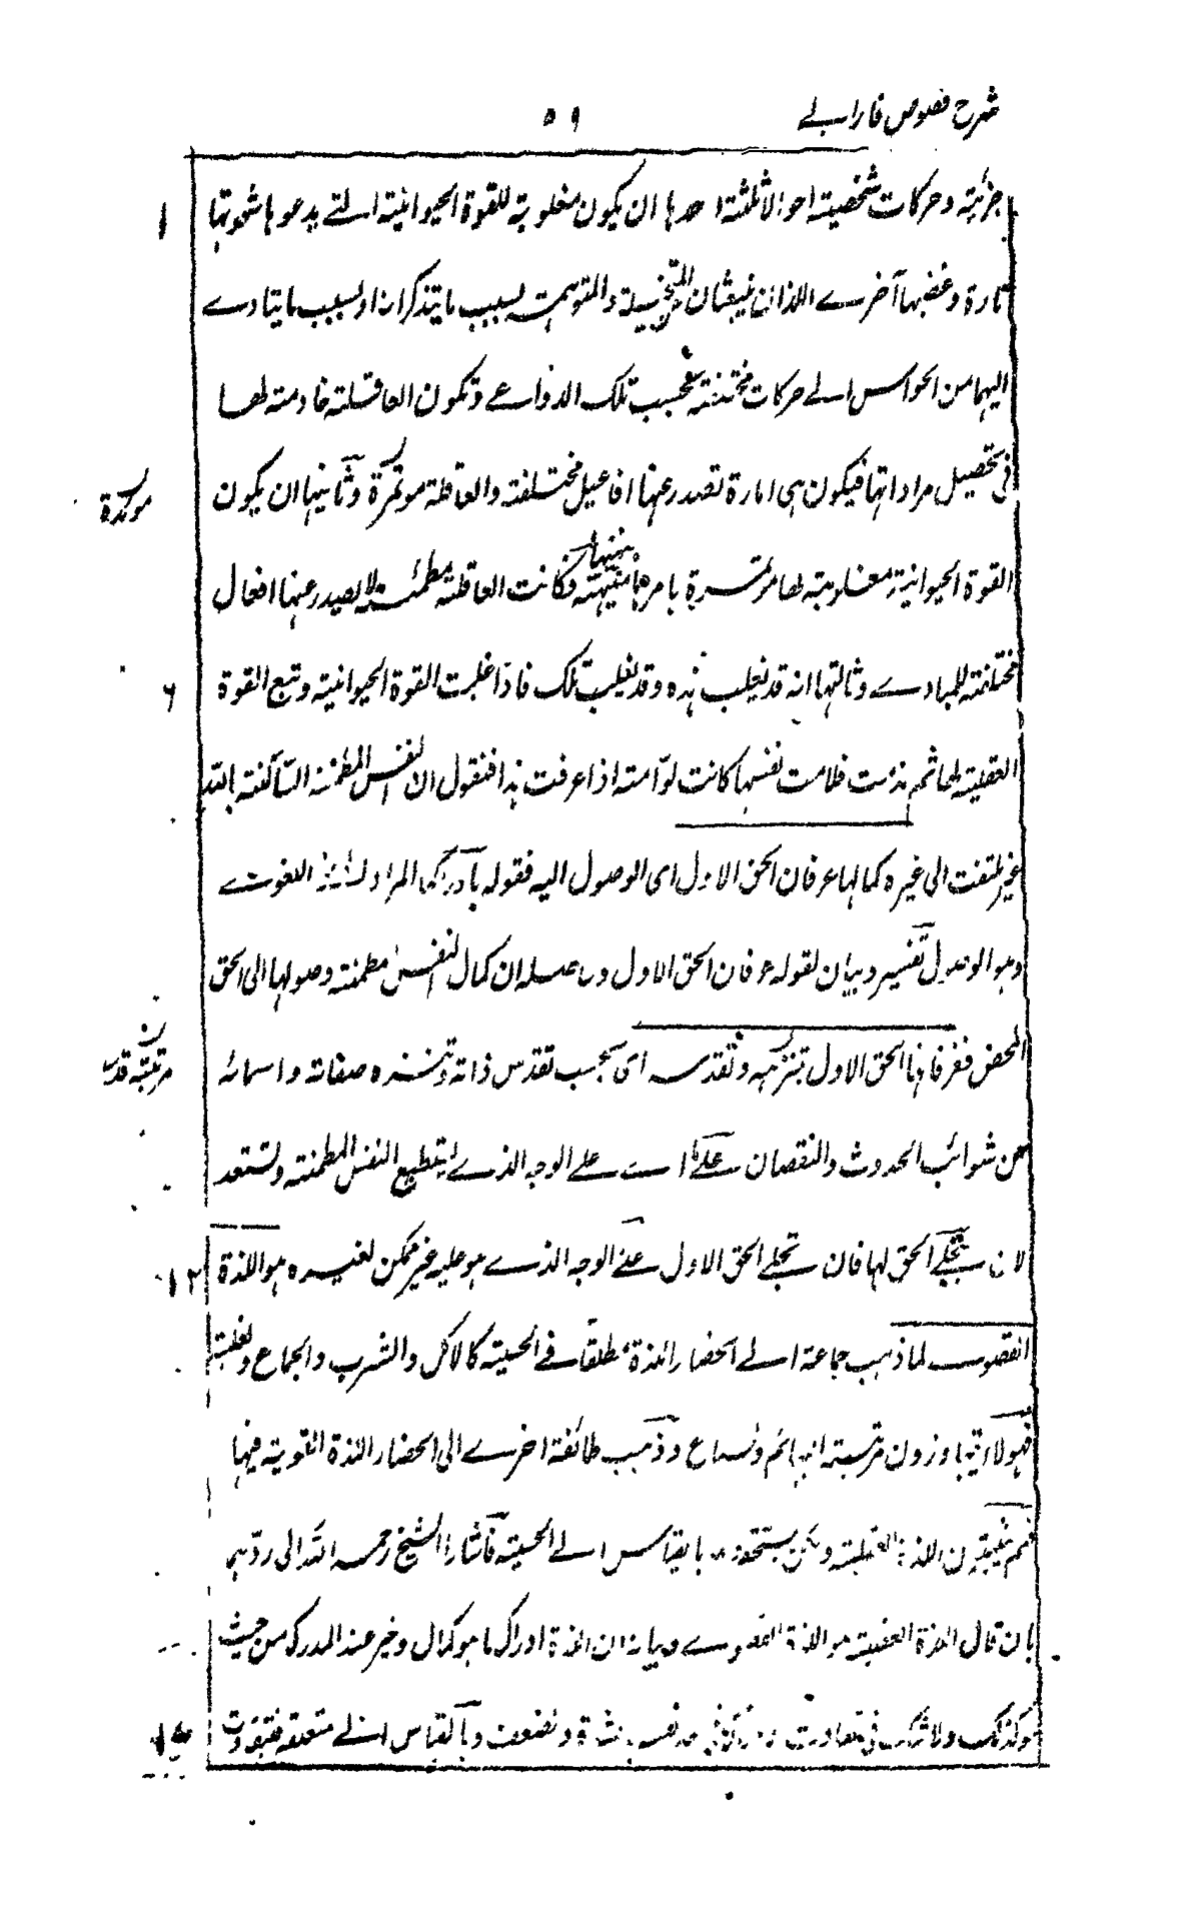 شرح فصوص فارابے
٥٩
جزئية وحركات شخصية احوالا ثلثة احدها ان يكون مغلوبة للقوة الحيوانية التے يدعوها شهوتها
١
تارة وغضبها آخرے اللذان ينبعثان المتخيلة والمتوهمة بسبب ما يتذكرانه او بسبب ما يتادے
اليهما من الحواس الے حركات مختلفة بحسب تلك الدواعے وتكون العاقلة خادمة لها
فى تحصيل مراداتها فيكون هى امارة تصدر عنها افاعيل مختلفة والعاقلة موتمرة وثانيها ان يكون
مؤتمرة
القوة الحيوانية مغلوبة لها بامرها منتهية فكانت العاقلة مطمئنة لا يصدر عنها افعال
مختلفة المبادے وثالثها انه قد تغلب هذه وقد تغلب تلك فاذا غلبت القوة الحيوانية وتبع القوة
٦
العقلية لها ثم ندمت فلامت نفسها كانت لوّامة اذا عرفت هذا فنقول ان النفس المطمئنة المتألفة بالله
غير ملتفت الى غيره كمالها عرفان الحق الاول اى الوصول اليه فقوله بادراكها المراد اللغوے
وهو الوصول تفسير وبيان لقوله عرفان الحق الاول وحاصله ان كمال النفس المطمئنة وصولها الى الحق
المحض فعرفانها الحق الاول بتنزيهه وتقدسه اى بحسب تقدس ذاته وتنزه صفاته واسمائه
مرتبة قدسه
عن شوائب الحدوث والنقصان علے ما اے علے الوجه الذے يستطيع النفس المطمئنة وتستعد
لان يتجلے الحق لها فان تجلے الحق الاول علے الوجه الذے هو عليه غير ممكن لغيره هو اللذة
١٢
القصوے لما ذهب جماعة الے انحصار اللذة مطلقا فے الحسية كالاكل والشرب والجماع والغلبة
فهولاء يتجاوزون مرتبة البهائم والسباع وذهب طائفة اخرے الى انحصار اللذة القوية فيها
فهم اللذة العقلية ولكن يستحقرونها بالقياس الے الحسية فاشار الشيخ رحمه الله الى ردّهم
بان قال اللذة العقلية هو اللذة القصوے وبيانه ان اللذة ادراك ما هو كمال وخير عند المدرك من حيث
هو كذلك ولا شك فى تفاوت شدة وضعف وبالقياس الے متعلقه فتفاوت